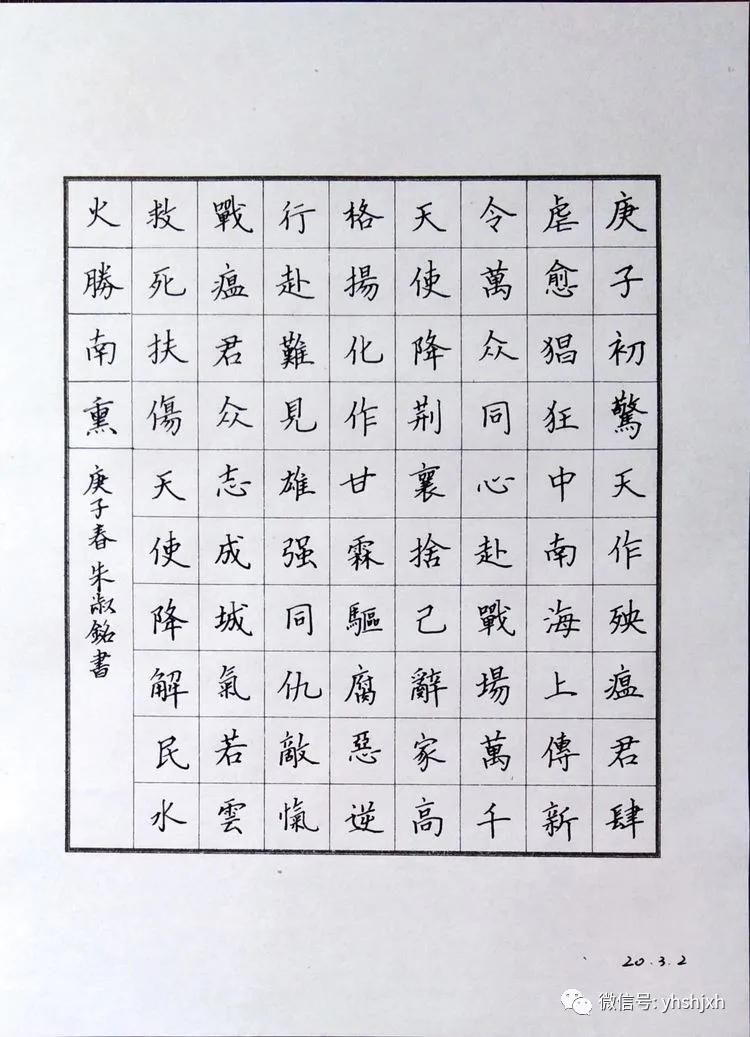 庚子初驚天作殃瘟君肆
虐愈猖狂中南海上傳新
令萬众同心赴戰場萬千
天使降荆襄捨己辭家高
格揚化作甘霖驅腐惡逆
行赴難見雄强同仇敵愾
戰瘟君众志成城氣若雲
救死扶傷天使降解民水
火勝南熏
庚子春朱淑銘書
20.3.2
微信号: yhshjxh